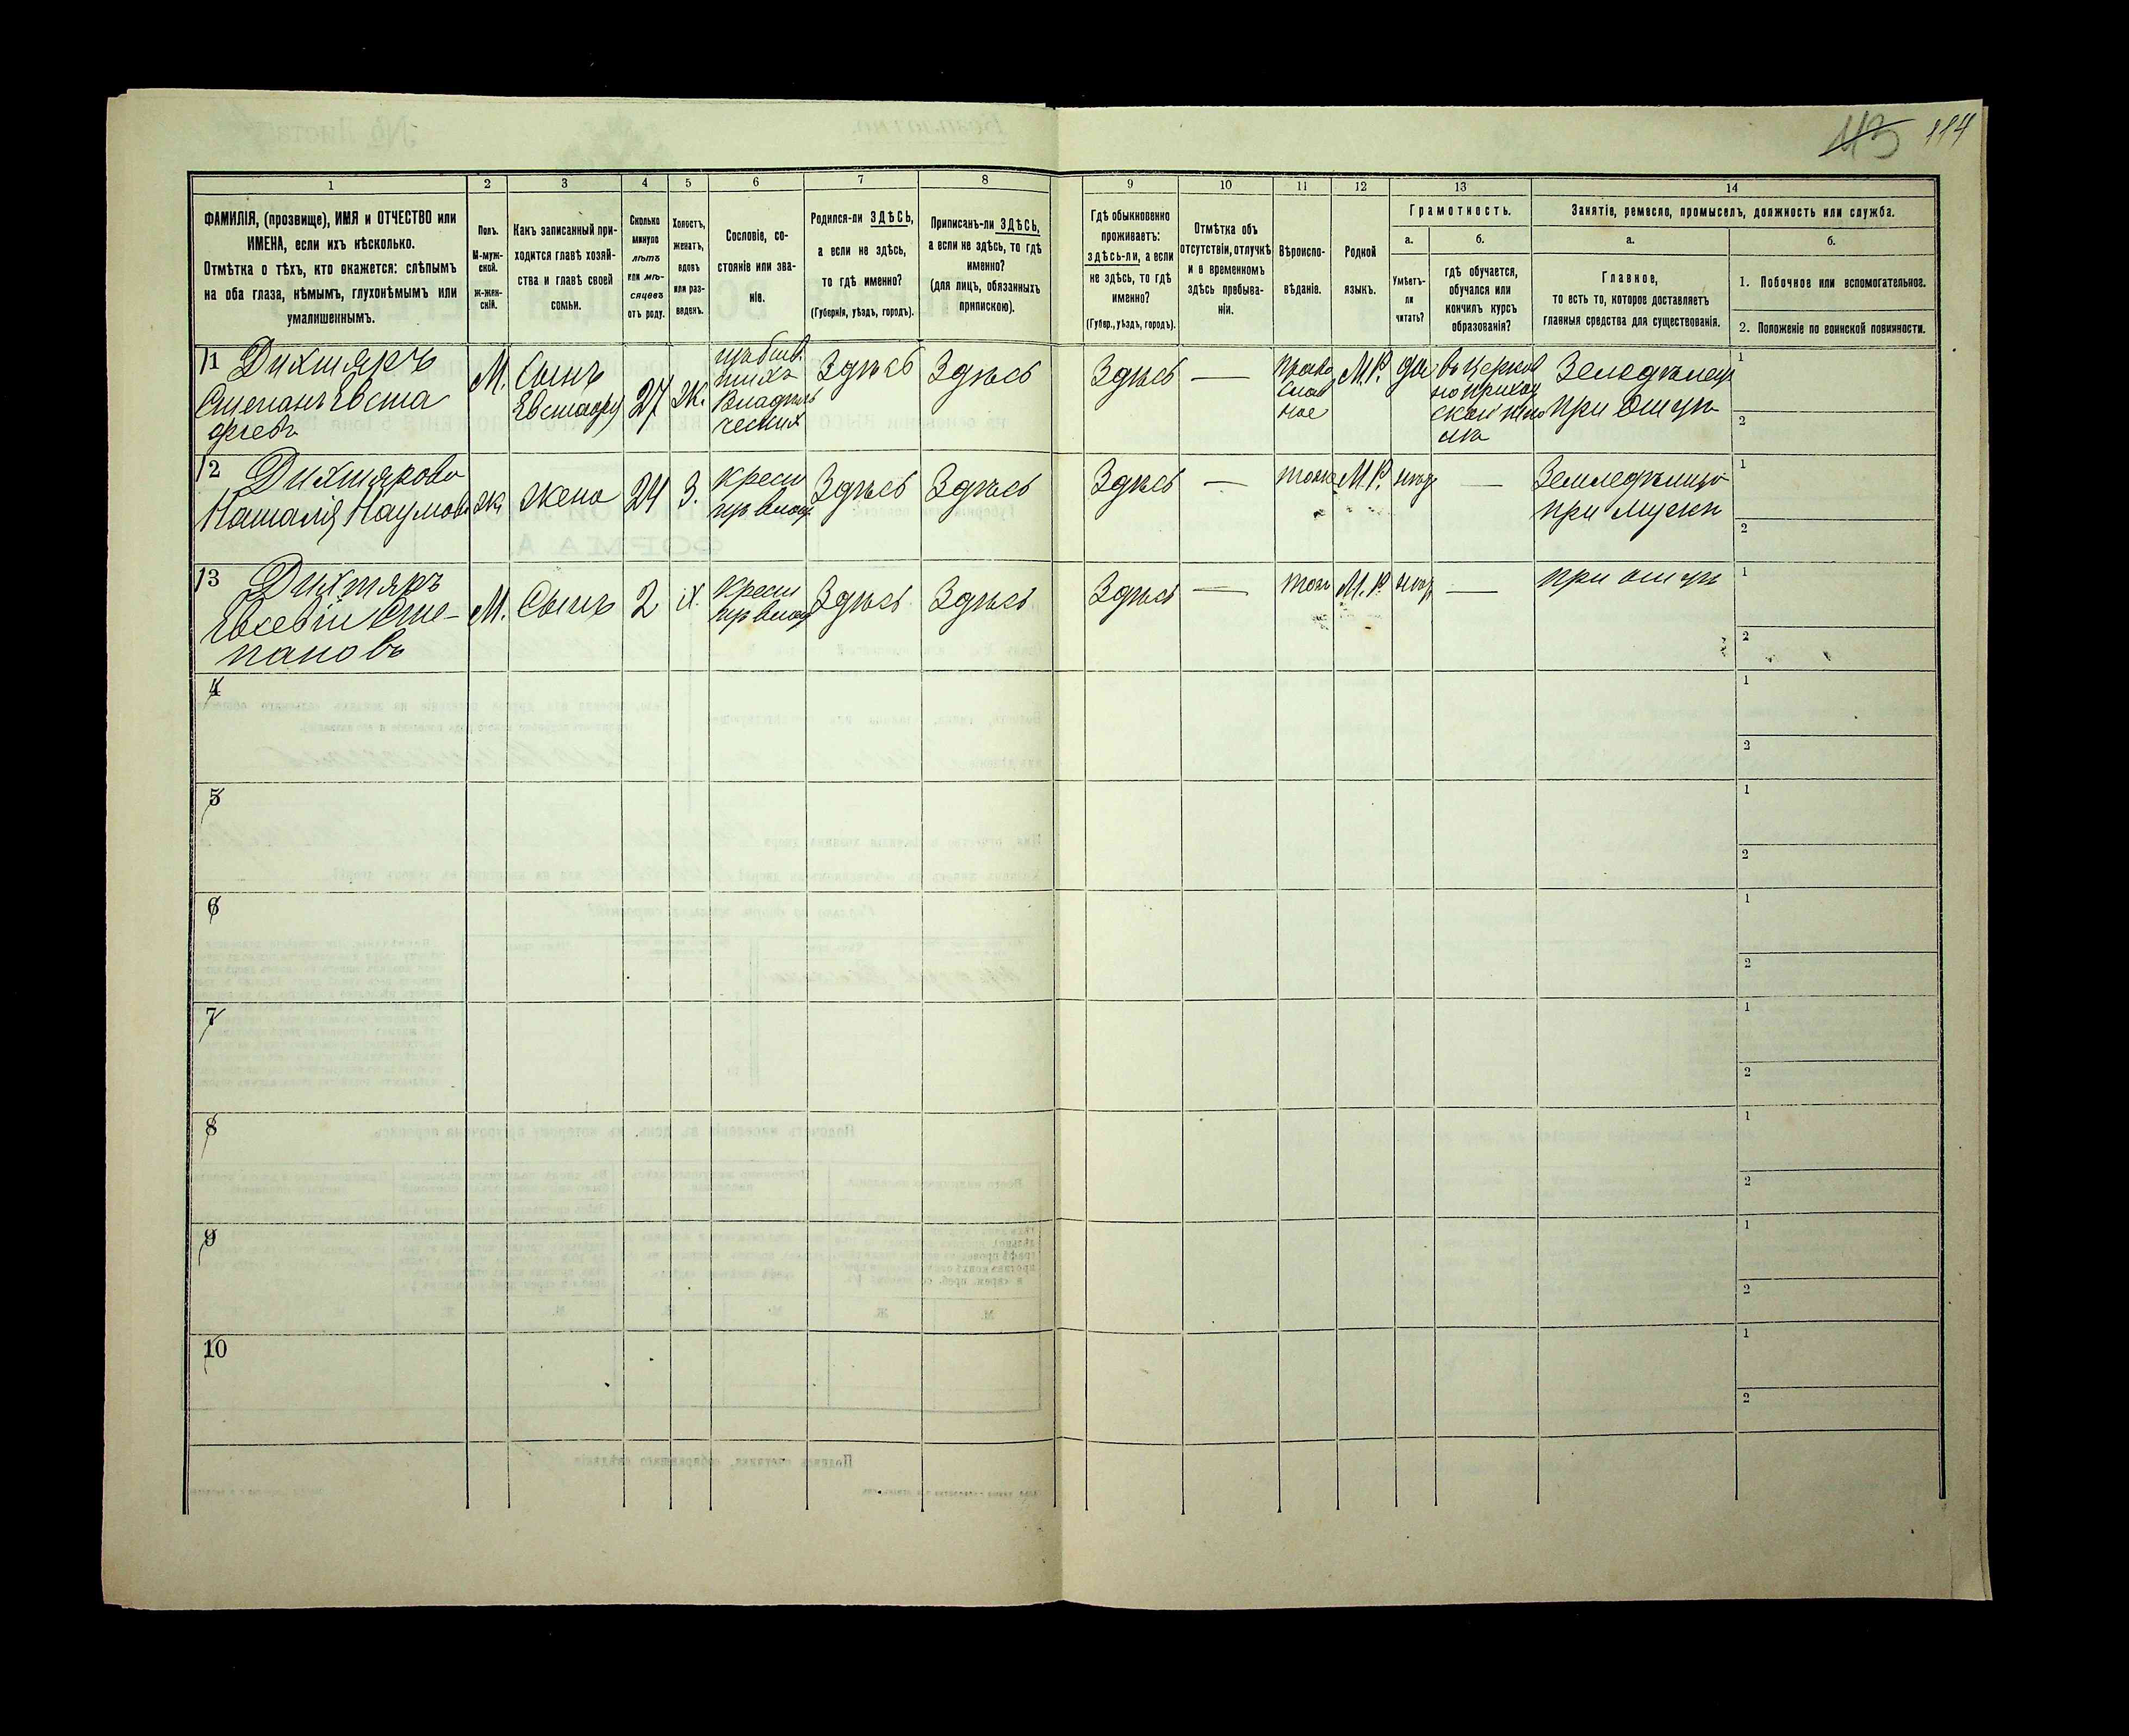 113 114
1 2 3 4 5 6 7 8 9 10 11 12 13 14
ФАМИЛІЯ, (прозвище), ИМЯ и ОТЧЕСТВО или
ИМЕНА, если ихъ нѣсколько.
Отмѣтка о тѣхъ, кто окажется: слѣпымъ
на оба глаза, нѣмымъ, глухонѣмымъ или
умалишеннымъ.
Полъ.
М-муж-
ской.
Ж-жен-
скій.
Какъ записанный при-
ходится главѣ хозяй-
ства и главѣ своей
семьи.
Сколько
минуло
лѣтъ
или мѣ-
сяцевъ
отъ роду.
Холостъ,
женатъ,
вдовъ
или раз-
веденъ.
Сословіе, со-
стояніе или зва-
ніе.
Родился-ли ЗДѢСЬ,
а если не здѣсь,
то гдѣ именно?
(Губернія, уѣздъ, городъ).
Приписанъ-ли ЗДѢСЬ,
а если не здѣсь, то гдѣ
именно?
(для лицъ, обязанныхъ
припискою).
Гдѣ обыкновенно
проживаетъ:
здѣсь-ли, а если
не здѣсь, то гдѣ
именно?
(Губер., уѣздъ, городъ).
Отмѣтка объ
отсутствіи, отлучкѣ
и о временномъ
здѣсь пребыва-
ніи.
Вѣроиспо-
вѣданіе.
Родной
языкъ.
Грамотность.
а.
Умѣетъ-
ли
читать?
б.
гдѣ обучается,
обучался или
кончилъ курсъ
образованія?
Занятіе, ремесло, промыселъ, должность или служба.
а.
Главное,
то есть то, которое доставляетъ
главныя средства для существованія.
б.
1. Побочное или вспомогательное.
2. Положеніе по воинской повинности.
1 Дихтяръ
Степанъ Евста
фіевъ
М.
Сынъ
Евстафія
27
Ж.
Владѣль
ческихъ
Здѣсь
Здѣсь
Здѣсь
—
право
слав
ное
М.Р.
да
въ церков
но приход
ской шко
лѣ
Земледѣлец
при отцѣ
1
2
2 Дихтярова
Наталія Наумова
Ж.
жена
24
З.
крест
Здѣсь
Здѣсь
Здѣсь
—
тоже
М.Р.
нѣт
—
Земледѣлица
при мужѣ
1
2
3 Дихтяръ
Евсевій Сте-
пановъ
М.
Сынъ
2
Х.
крест
Здѣсь
Здѣсь
Здѣсь
—
тоже
М.Р.
нѣт
—
при отцѣ
1
2
4
1
2
5
1
2
6
1
2
7
1
2
8
1
2
9
1
2
10
1
2